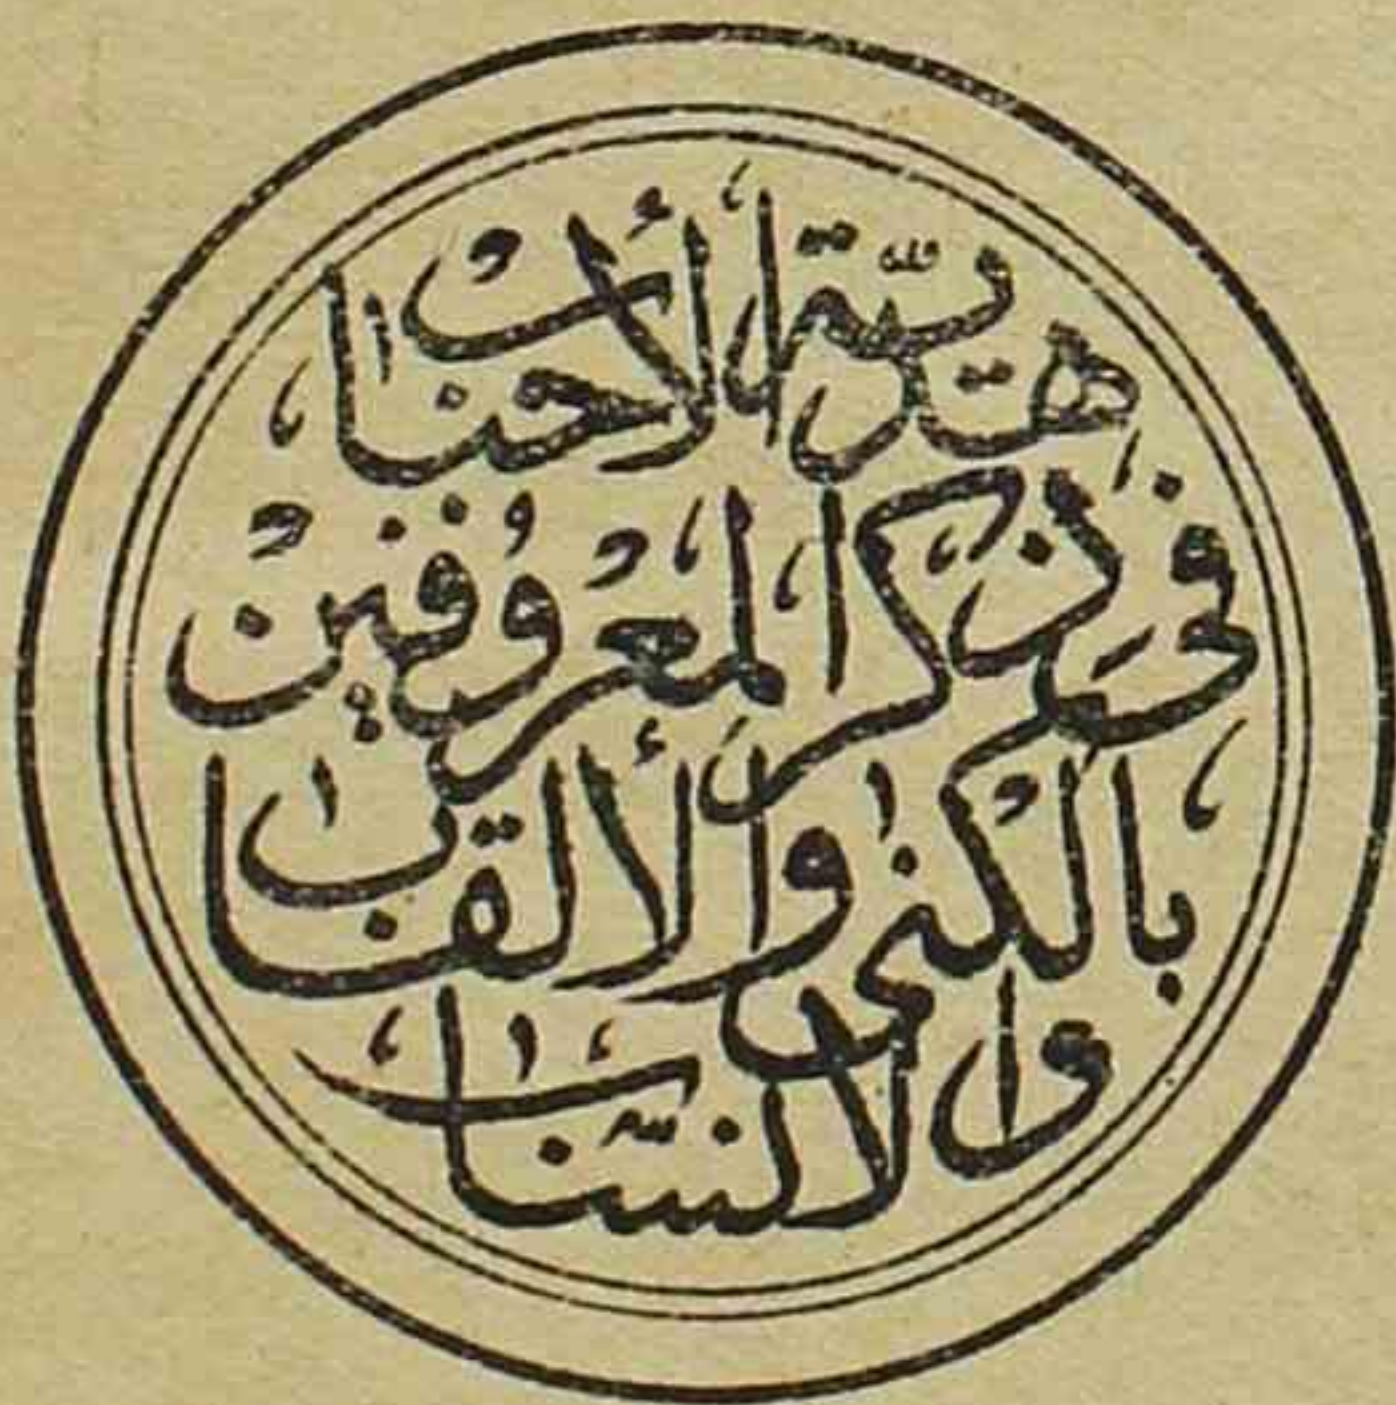 هديّة الأحباب
في ذكر المعروفين
بالكنى والألقاب
والانساب